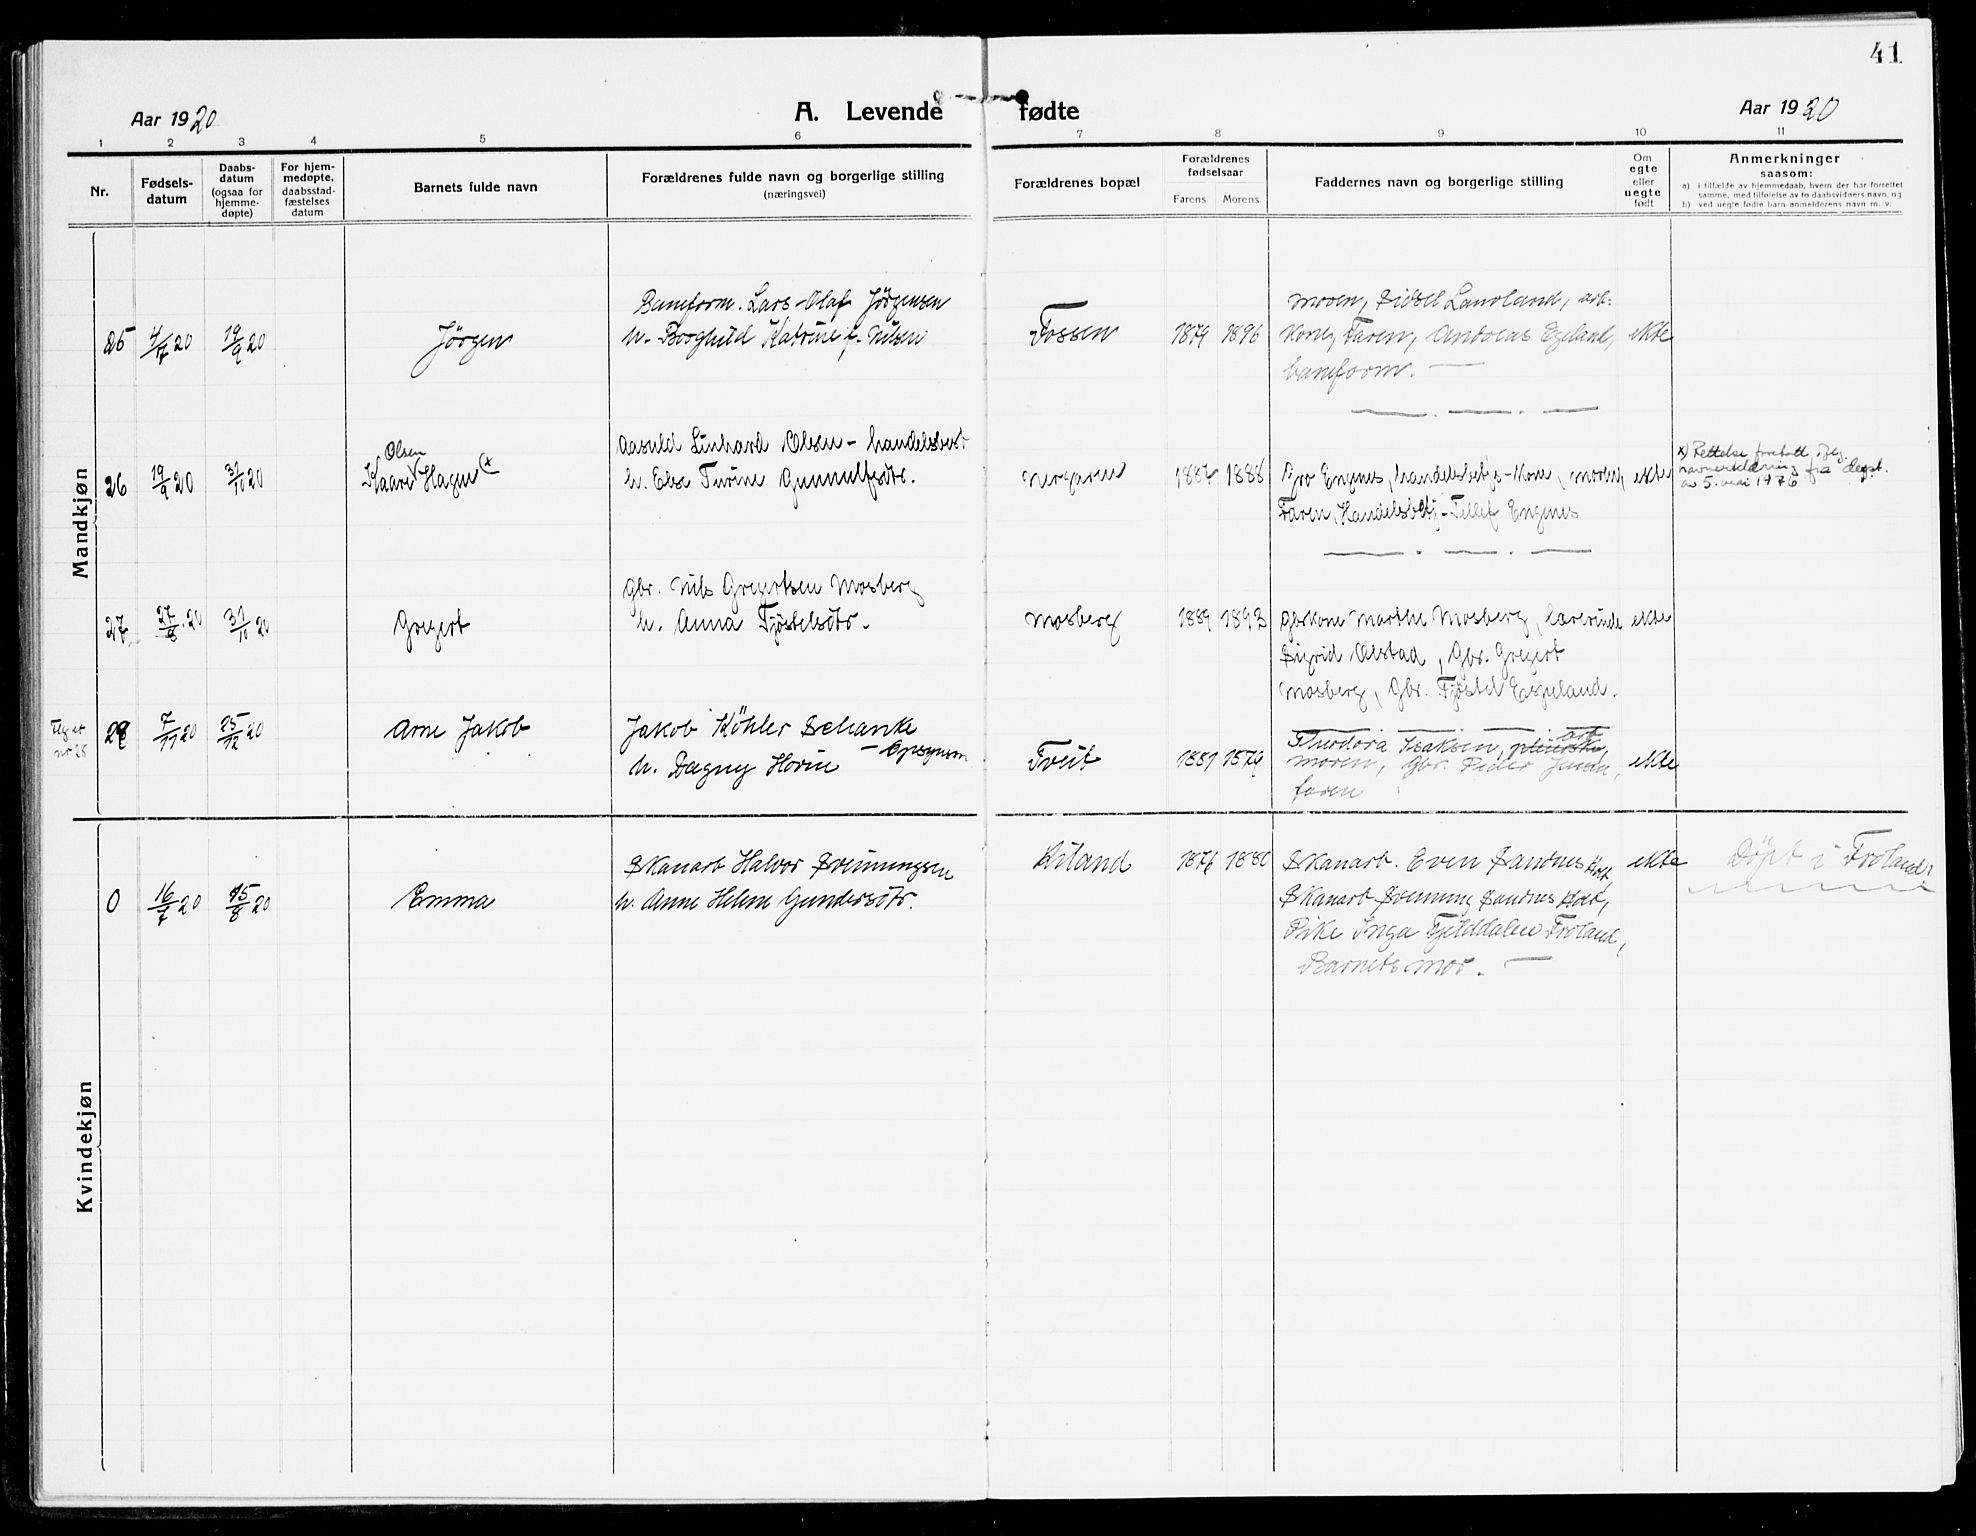 41
Aar 1920
A. Levende fødte
Aar 1920
1 2 3 4 5 6 7 8 9 10 11
Nr.
Fødsels-
datum
Daabs-
datum
(ogsaa for
hjemme-
døpte)
For hjem-
medøpte,
daabsstad-
fæstelses
datum
Barnets fulde navn
Forældrenes fulde navn og borgerlige stilling
(næringsvei)
Forældrenes bopæl
Forældrenes
fødselsaar
Farens Morens
Faddernes navn og borgerlige stilling
Om
egte
eller
uegte
født
Anmerkninger
saasom:
a) i tilfælde av hjemmedaab, hvem der har forrettet
samme, med tilføielse av to daabsvidners navn, og
b) ved uegte fødte barn anmelderens navn m. v.
Mandkjøn
25 4/7 20 19/9 20
Jörgen
Baneform. Lars Olaf Jörgensen
h. Borghild Katrine f. Nilsen
Fossen
1879 1896
moren, Sidsel Lauvland, arb.
kone, Faren, Andreas Egeland,
baneform. —
ekte
26 19/9 20 31/10 20
Olsen
Kaare Hagen x
Aasuld Linhard Olsen - handelsbest
h. Else Turine Gunnulfsdtr.
1887 1888
Gro Engenes, handelsbetj.-kone, moren,
Faren, Handelsbetj. Tellef Engenes
ekte
x) Rettelse foretatt iflg.
navneerklæring fra dept.
av 5. mai 1976
27 27/8 20 31/10 20
Gregert
Gbr. Nils Gregertsen Mosberg
h. Anna Fjöstelsdtr.
Mosberg
1889 1893
Gbrkone Marthe Mosberg, lærerinde
Sigrid Olstad, Gbr. Gregert
Mosberg, Gbr. Fjöstel Espeland.
ekte
28 7/11 20 25/12 20
Arne Jakob
Jakob Köhler Schanke
— Opsynsm
h. Dagny Horne
Tveit
1881 1879
arb
Theodora Isaksen,
moren, Gbr. Peder Jensen,
faren
ekte
Kvindekjøn
0 16/7 20 15/8 20
Emma
Skanarb Halvor Sveinungsen
h. Anne Helene Gundersdtr.
Risland
1876 1880
Skanarb. Even Sandnes Holt,
Skanarb Sveinung Sandnes Holt,
Pike Inga Fjelddalen Froland,
Barnets mor. —
ekte
Döpt i Froland.